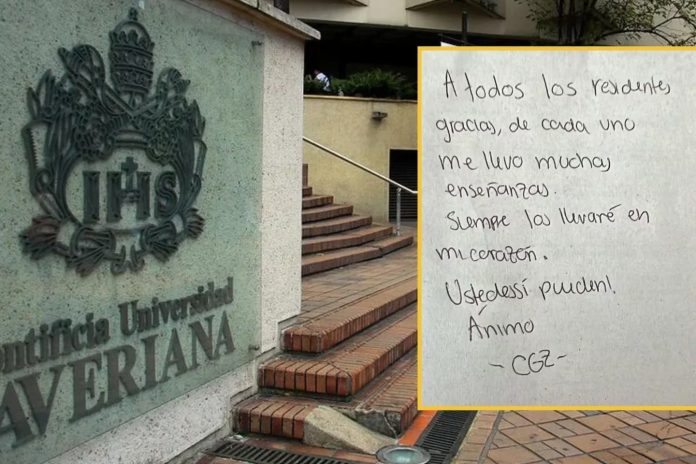 IHS
ontificia Universidad
AVERIANA
A todos los residentes,
gracias, de cada uno
me llevo muchas
enseñanzas.
Siempre los llevaré en
mi corazón.
Ustedes sí pueden!
Ánimo
- CGZ -